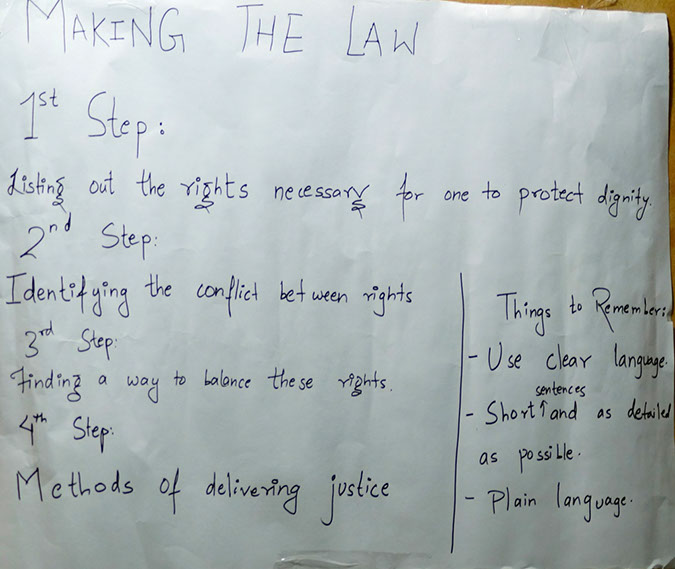 MAKING THE LAW
1st Step:
Listing out the rights necessary for one to protect dignity.
2nd Step:
Identifying the conflict between rights
3rd Step:
Finding a way to balance these rights.
4th Step:
Methods of delivering justice
Things to Remember:
- Use clear language.
sentences
- Short↑and as detailed
as possible.
- Plain language.